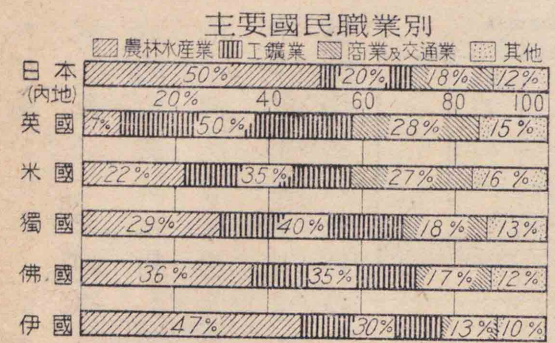 主要國民職業別
農林水産業 工鑛業 商業及交通業 其他
日本 50% 20% 18% 12%
(内地) 20% 40 60 80 100
英國 7% 50% 28% 15%
米國 22% 35% 27% 16%
獨國 29% 40% 18% 13%
佛國 36% 35% 17% 12%
伊國 47% 30% 13% 10%